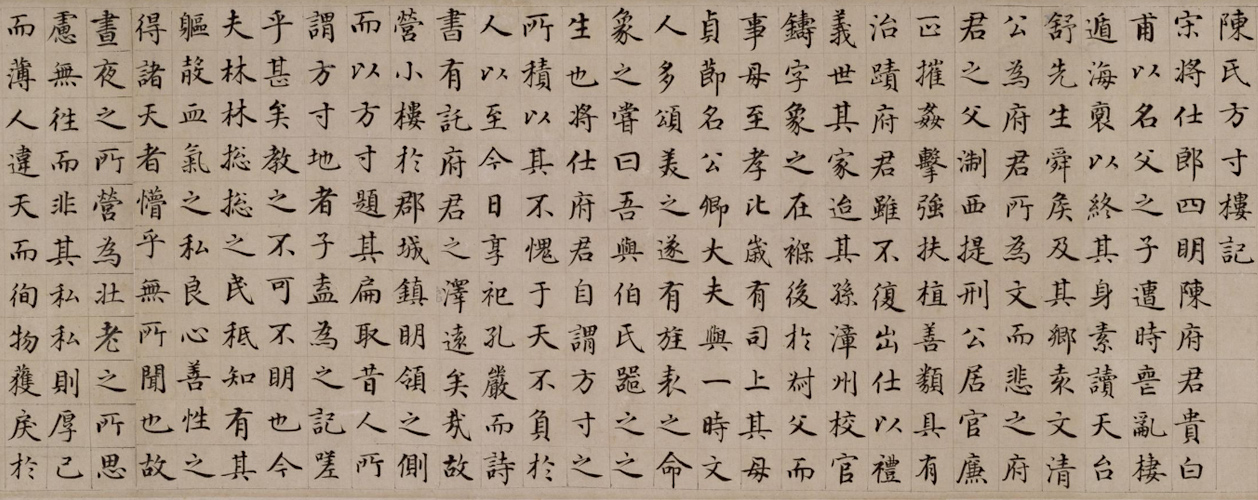 陳氏方寸樓記
宋將仕郎四明陳府君貴白
甫以名父之子遭時喪亂棲
遁海裔以終其身素讀天台
舒先生舜矦及其鄉袁文清
公為府君所為文而悲之府
君之父淛西提刑公居官廉
正摧姦擊強扶植善類具有
治蹟府君雖不復出仕以禮
義世其家迨其孫漳州校官
鑄字象之在褓後於父而
事母至孝比歲有司上其母
貞節名公卿大夫與一時文
人多頌美之遂有旌表之命
象之嘗曰吾與伯氏之之
生也將仕府君自謂方寸之
所積以其不愧于天不負於
人以至今日享祀孔嚴而詩
書有託府君之澤遠矣哉故
營小樓於郡城鎮明領之側
而以方寸題其扁取昔人所
謂方寸地者子盍為之記嗟
乎甚矣教之不可不明也今
夫林林捴捴之民秪知有其
軀殼血氣之私良心善性之
得諸天者懵乎無所聞也故
晝夜之所營為壯老之所思
慮無徃而非其私私則厚己
而薄人違天而徇物獲戾於